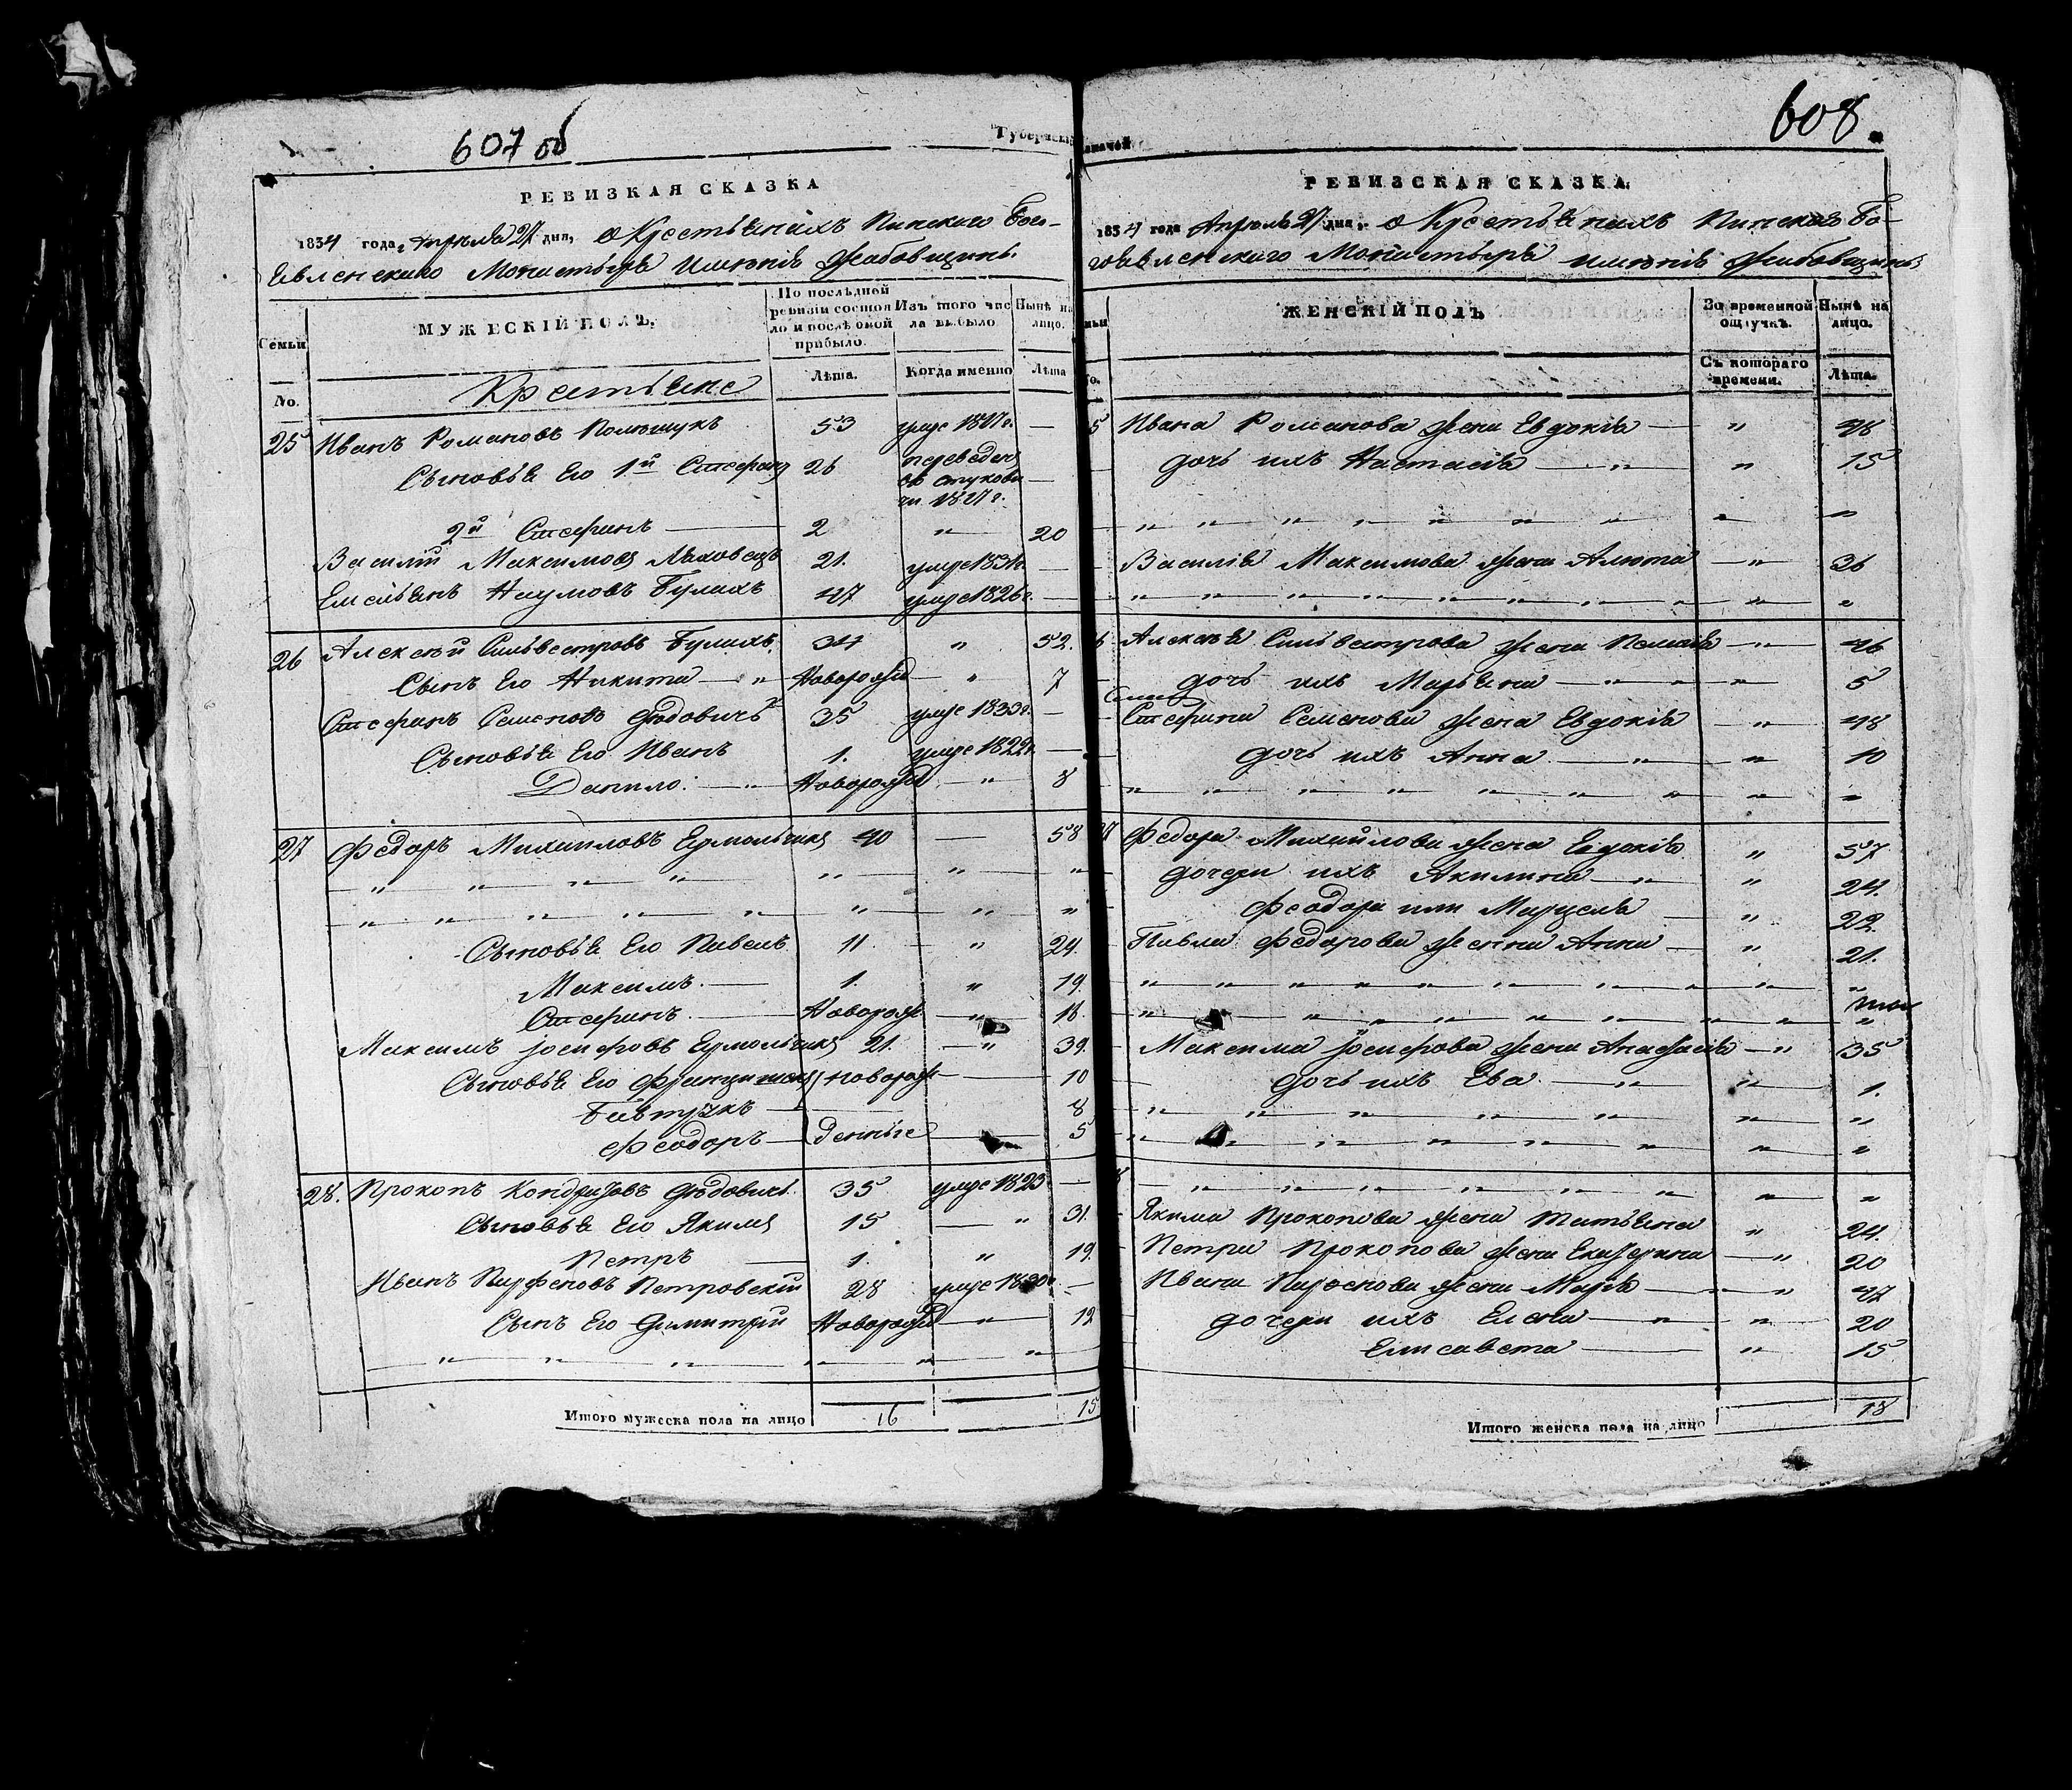 607 об
608
РЕВИЗКАЯ СКАЗКА
1834 года, Апреля 27 дня, о Крестьянахъ Пинского Бого-
явленского Монастыря Имѣнія Жабовщины
МУЖЕСКІЙ ПОЛЪ.
Семьи
No.
По последней ревизіи состоя
ло и после оной прибыло.
Лѣта.
Изъ того чис
ла выбыло
Когда именно
Нынѣ на
лицо.
Лѣта
Крестьяне
25 Иванъ Романовъ Полещукъ 53 умре 1817г. —
Сыновья Его 1й Стефанъ 26 переведенъ въ Стукови
чи 1827г. —
2й Стефанъ — 2 " 20
Василій Максимовъ Ляховецъ 21. умре 1831г. —
Емельянъ Наумовъ Булахъ 47 умре 1826г. —
26 Алексѣй Сильвестровъ Булахъ 34 " 52.
Сынъ Его Никита — " Новорожд — " 7
Стефанъ Семеновъ Дѣдовичъ 35 умре 1833г. —
Сыновья Его Иванъ 1. умре 1822г. —
Данило. — " Новорожд — " 8
27 Федоръ Михайловъ Ермольчикъ 40 — 58
Сыновья Его Павелъ 11. — " 24.
Максимъ. — 1. " 19.
Стефанъ. — Новорож — " 16.
Максимъ Іосифовъ Ермольчикъ 21. — " 39.
Сыновья Его Францишекъ новорож — 10
8
Феодоръ — денные — 5
28. Прокопъ Кондратовъ Дѣдовичъ 35 умре 1823 —
Сыновья Его Якимъ 15 — " 31.
Петръ — 1. " 19.
Иванъ Парфеновъ Петровскій 28 умре 1830г. —
Сынъ Его Димитрій Новорожд — " 12
Итого мужеска пола на лицо 16 15
РЕВИЗСКАЯ СКАЗКА.
1834 года Апреля 27 дня, о Крестьянахъ Пинского Бо-
гоявленского Монастыря имѣнія Жабовщины
ЖЕНСКІЙ ПОЛЪ
Во временной
отлучкѣ.
Съ котораго
времени.
Нынѣ на
лицо.
Лѣта.
5 Ивана Романова жена Евдокія — " 48
дочь ихъ Настасія — " — " 15
Василія Максимова жена Алюта — " 36
6 Алексѣя Сильвестрова жена Пелагія — " — 46
дочь ихъ Марьяна — " — " — " 5
Стефана Семенова жена Евдокія " 48
дочь ихъ Анна — " — " 10
27 Федора Михайлова жена Евдокія " 57
дочери ихъ Акилина — " — " 24.
Феодора или Марцеля — " 22.
Павла Федорова жена Анна — " 21.
Максима Іосифова жена Анастасія — " 35
дочь ихъ Ева. — " — " 1.
8
Якима Прокопова жена Татьяна " 24.
Петра Прокопова жена Екатерина — " 20
Ивана Парфенова жена Марія — " 47
дочери ихъ Елена — " — " 20
Елисавета — " 15
Итого женска пола на лицо 18